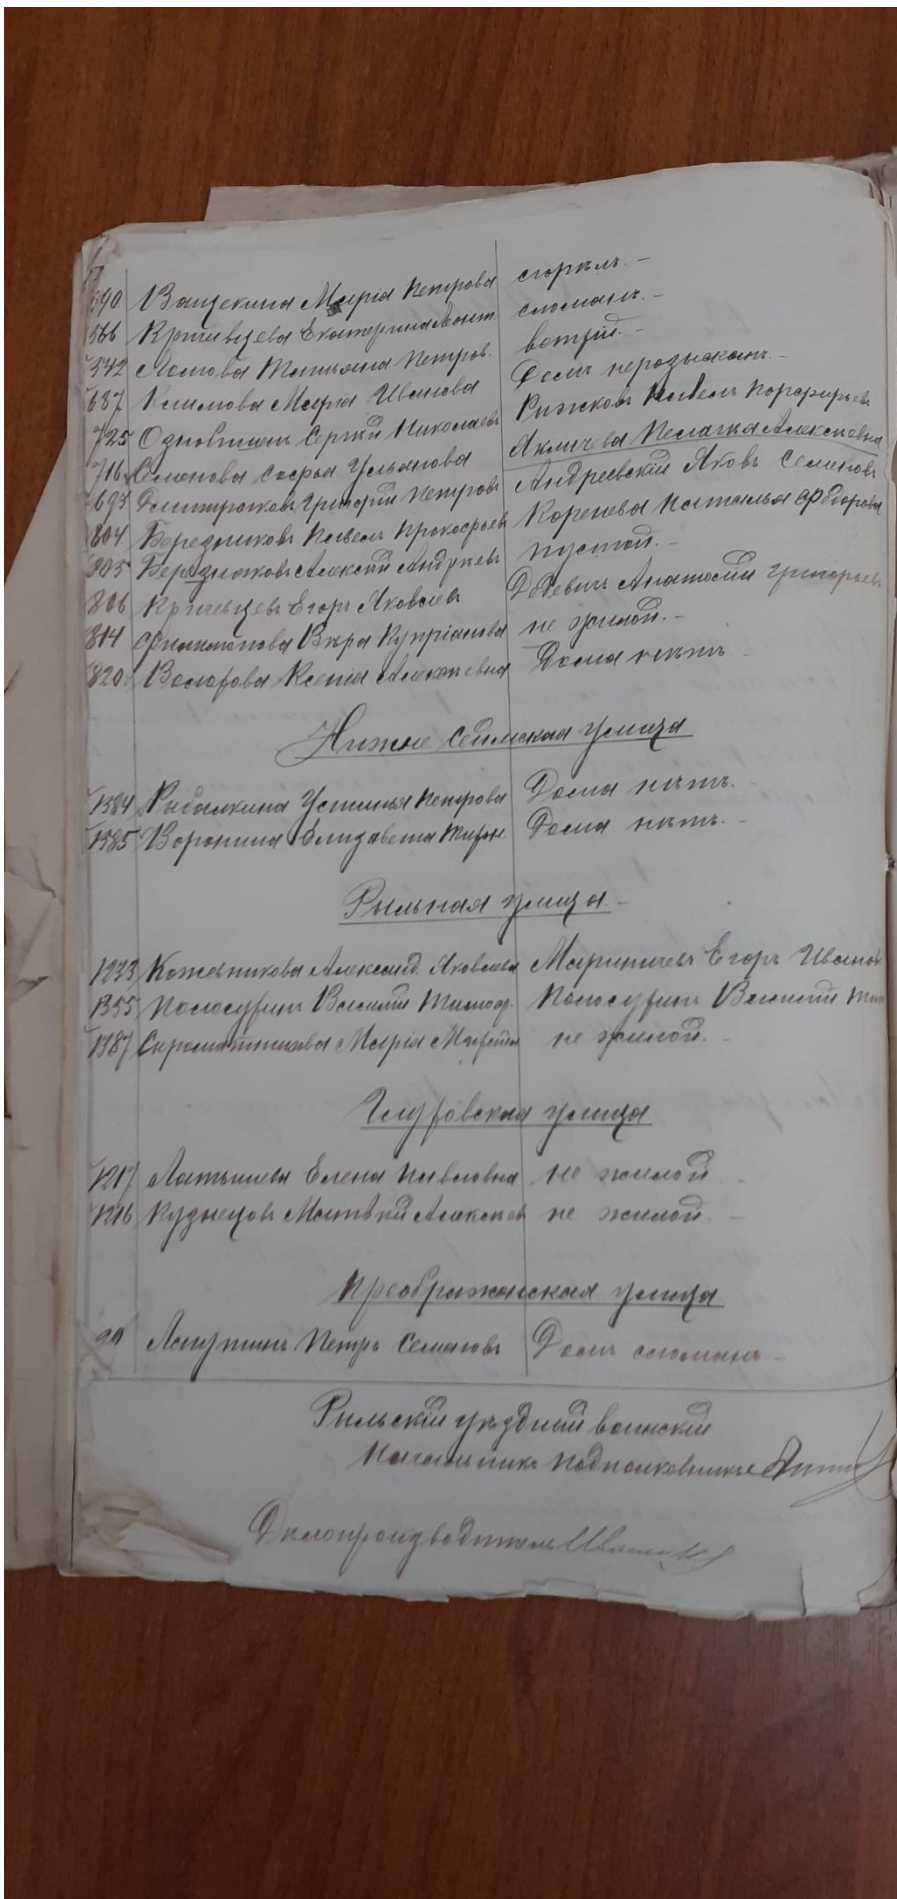 590 Ващекина Марія Петрова сгорѣлъ. –
566 Кривцева Екатерина Леонт. сломанъ. –
542 Ломова Татьяна Петров. ветхій. –
687 Климова Марія Иванова Домъ неразысканъ. –
725 Сергѣй Николаевъ Рижковъ Павелъ Порфирьевъ
716 Семенова Софья Ульянова Пелагея Алексѣевна
693 Дмитрюковъ Григорій Петровъ Андреевскій Яковъ Семеновъ
804 Березниковъ Павелъ Прокофьевъ Коренева Наталья Ѳедорова
805 Березняковъ Алексѣй Андреевъ пустой. –
806 Кривцевъ Егоръ Яковлевъ Анатолій Григорьевъ
814 Филимонова Вѣра Купріянова не жилой. –
820 Ксенія Алексѣевна Дома нѣтъ –
Нижне Сеймская улица
1384 Рыбалкина Устинья Петрова Дома нѣтъ. –
1385 Воронина Елизавета Дома нѣтъ. –
Рыльная улица –
1223 Кожевникова Александ. Яковлева Мариничевъ Егоръ Иванов
1355 Полосухинъ Василій Тимоф. Полосухинъ Василій Тим
1387 Сыромятникова Марія не жилой. –
Глуховская улица
1217 Латышева Елена Павловна не жилой –
1216 Кузнецовъ Матвѣй Алексѣев не жилой. –
Преображенская улица
Лапутинъ Петръ Семеновъ Домъ сломанъ –
Рыльскій уѣздный воинскій
Начальникъ Подполковникъ
Дѣлопроизводитель